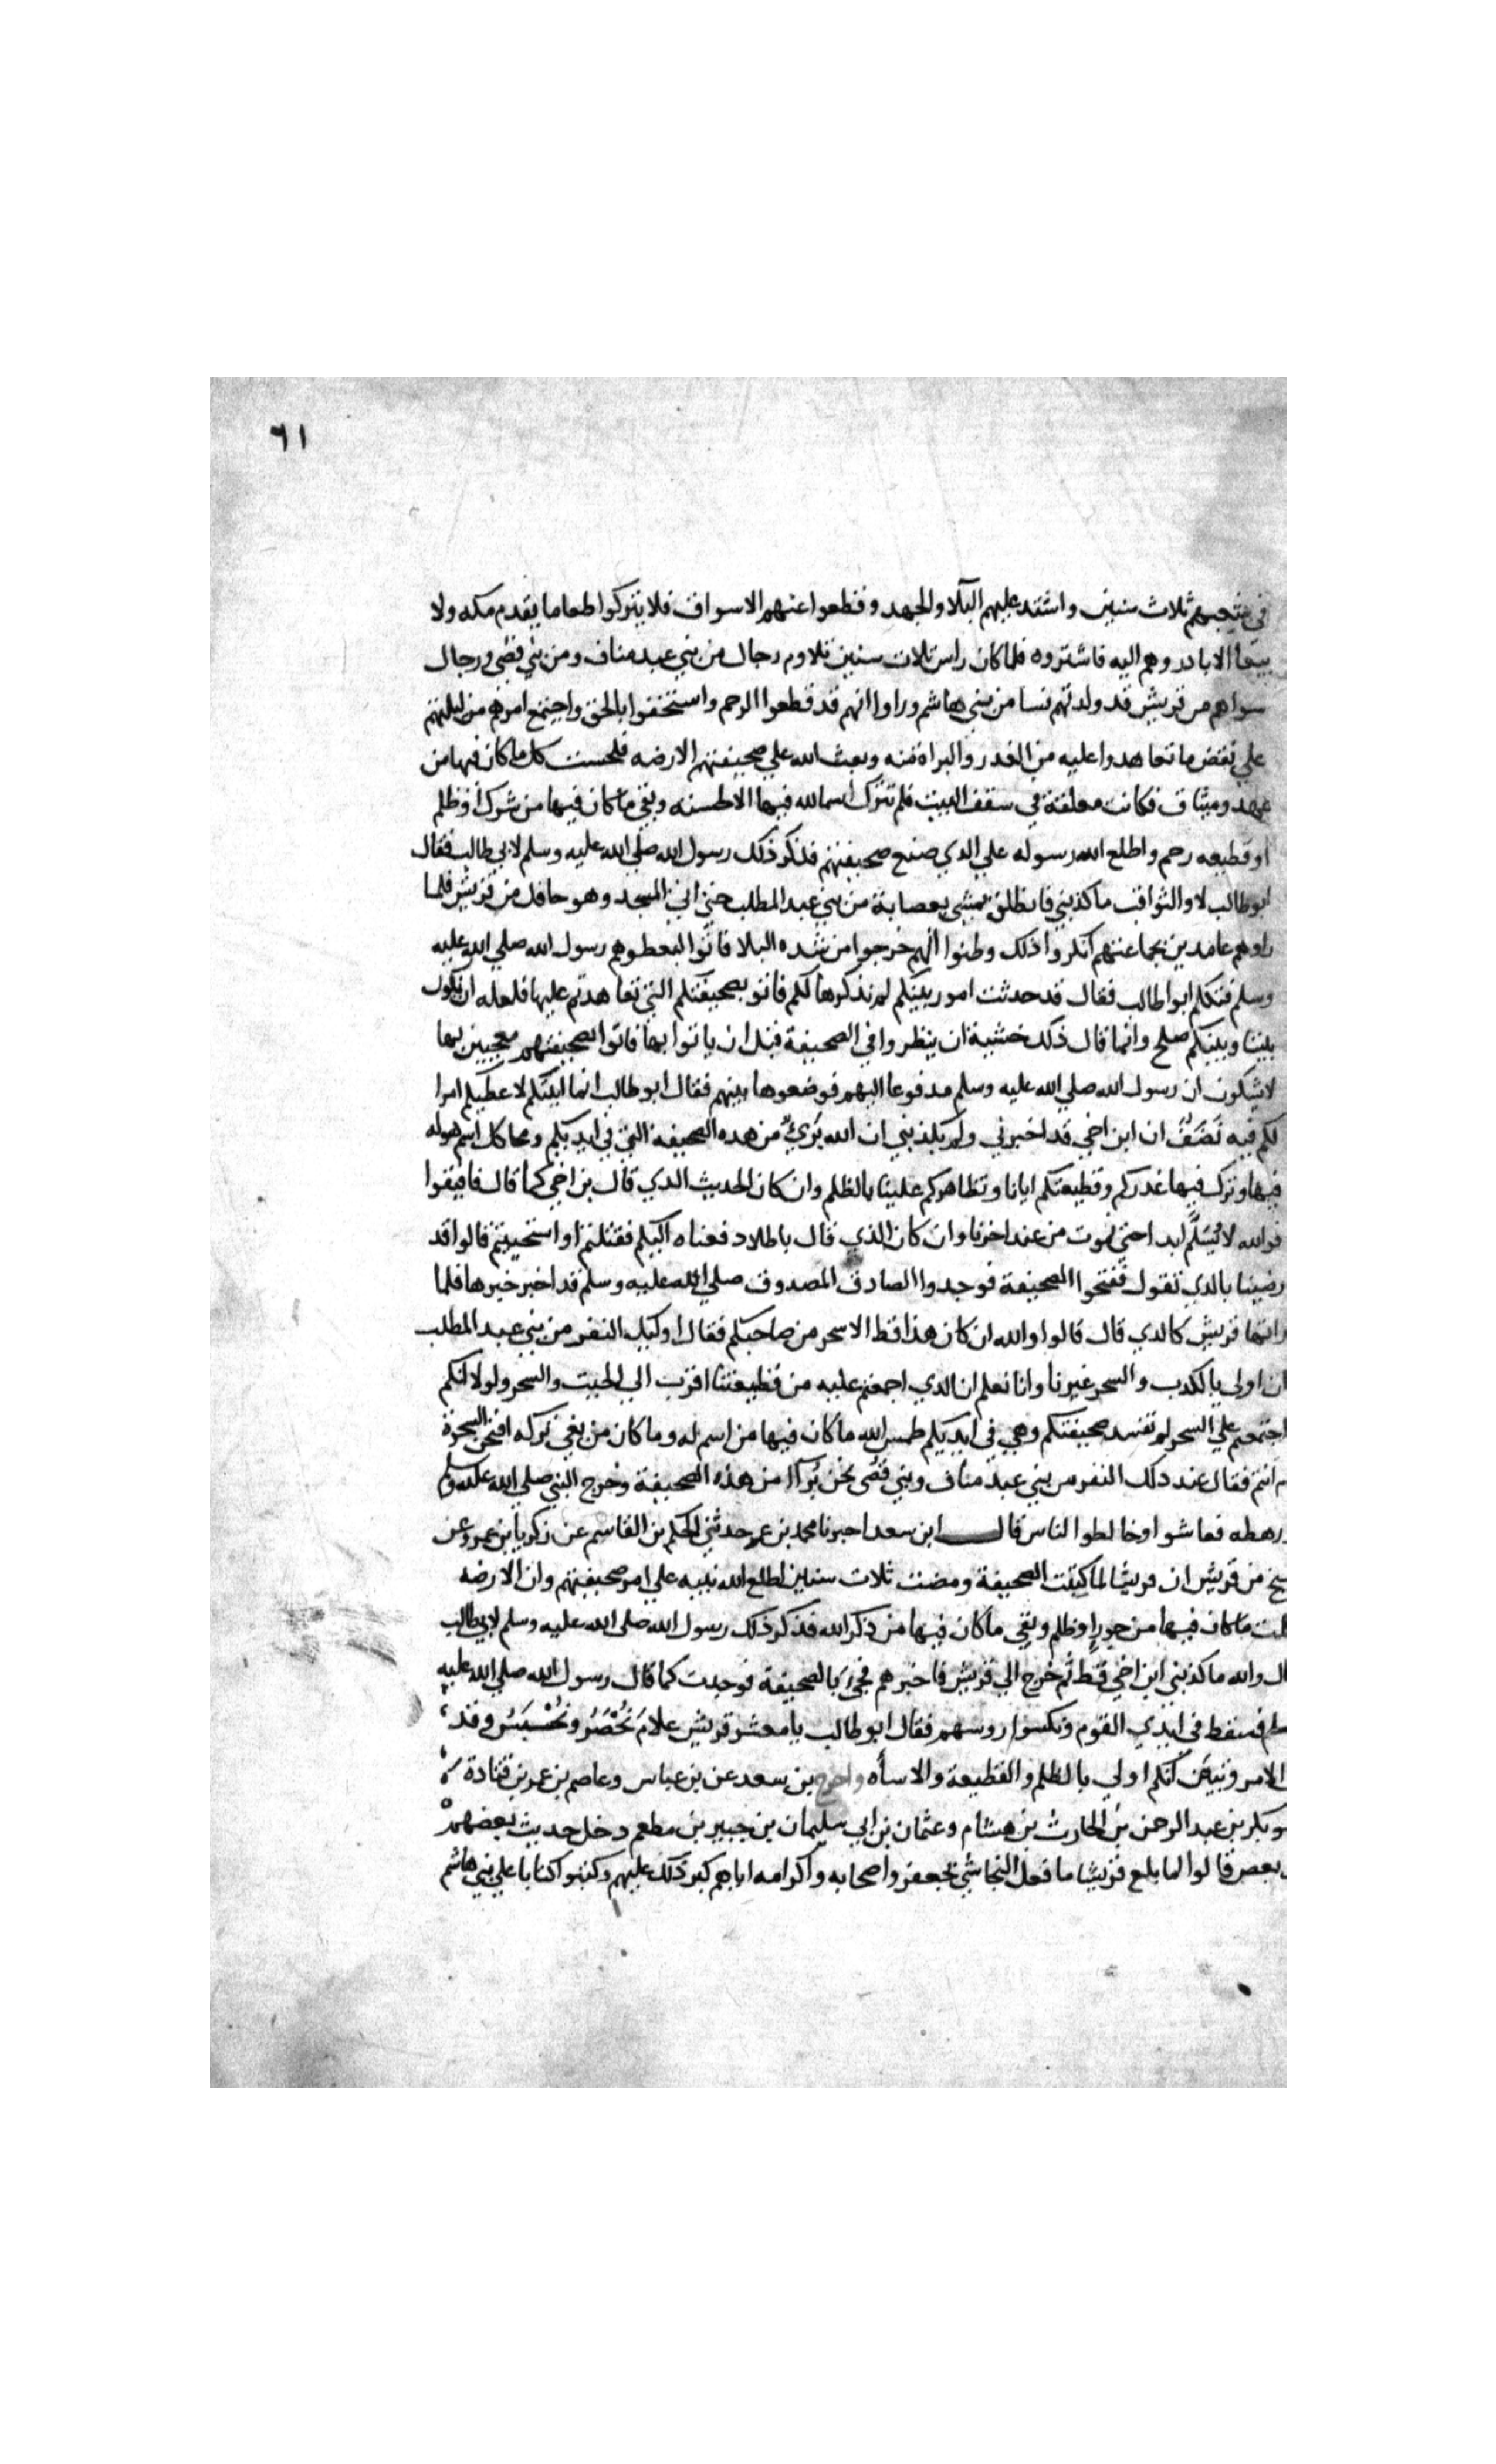 ٦١
في شعبهم ثلاث سنين واشتد عليهم البلا والجهد وقطعوا عنهم الاسواق فلا يتركوا طعاما يقدم مكه ولا
بيعا الا بادروهم اليه فاشتروه فلما كان راس ثلاث سنين تلاوم رجال من بني عبد مناف ومن بني قصي ورجال
سواهم من قريش قد ولدتهم نسا من بني هاشم وراوا انهم قد قطعوا الرحم واستخفوا بالحق واجتمع امرهم من ليلتهم
علي نقض ما تعاهدوا عليه من الغدر والبراة منه وبعث الله علي صحيفتهم الارضه فلحست كل ما كان فيها من
عهد وميثاق فكانت معلقة في سقف البيت فلم تترك اسما لله فيها الا لحسته وبقي ما كان فيها من شرك او ظلم
او قطيعه رحم واطلع الله رسوله علي الذي صنع صحيفتهم فذكر ذلك رسول الله صلي الله عليه وسلم لابي طالب فقال
ابو طالب لا والثواقب ما كذبني فانطلق يمشي بعصابة من بني عبد المطلب حتي اتي المسجد وهو حافل من قريش فلما
راوهم عامدين بجماعتهم انكروا ذلك وظنوا انهم خرجوا من شده البلا فاتوا ليعطوهم رسول الله صلي الله عليه
وسلم فتكلم ابوا طالب فقال قد حدثت امور بينكم لم نذكرها لكم فاتو بصحيفتكم التي تعاهدتم عليها فلعله ان يكون
بيننا وبينكم صلح وانما قال ذلك خشية ان ينظروا في الصحيفة قبل ان ياتوا بها فاتوا بصحيفتهم معجبين بها
لا يشكون ان رسول الله صلي الله عليه وسلم مدفوعا اليهم فوضعوها بينهم فقال ابو طالب انما اتيتكم لاعطيكم امرا
لكم فيه نَصَفٌ ان ابن اخي قد اخبرني ولم يكذبني ان الله بَرِيٌ من هده الصحيفة التي في ايديكم ومحا كل اسم هو له
فيها وترك فيها غدركم وقطيعتكم ايانا وتظاهركم علينا بالظلم وان كان الحديث الدي قال بن اخي كما قال فافيقوا
فوالله لا نُسَلِّم ابدا حتي نموت من عند اخرنا وان كان الذي قال باطلا دفعناه اليكم فقتلتم او استحييتم قالوا قد
رضينا بالدي تقول ففتحوا الصحيفة فوجدوا الصادق المصدوق صلي الله عليه وسلم قد اخبر خبرها فلما
راتها قريش كالدي قال قالوا والله ان كان هذا قط الا سحر من صاحبكم فقال اوليك النفر من بني عبد المطلب
ان اولي بالكدب والسحر غيرنا وانا نعلم ان الدي اجمعتم عليه من قطيعتنا اقرب الي الجبت والسحر ولولا انكم
اجتمعتم علي السحر لم تفسد صحيفتكم وهي في ايديكم طمس الله ما كان فيها من اسم له وما كان من بغي تركه افنحن السحرة
م انتم فقال عند دلك النفر من بني عبد مناف وبني قصي نحن بُرَآا من هذه الصحيفة وخرج النبي صلي الله عليه وسلم
ورهطه فعاشوا وخالطوا الناس قال ابن سعد اخبرنا محمد بن عمر حدثني الحكم بن القاسم عن زكريا بن عمرو عن
شيخ من قريش ان قريشا لما كتبت الصحيفة ومضت ثلاث سنين اطلع الله نبيه علي امر صحيفتهم وان الارضه
كلت ما كان فيها من جور او ظلم وبقي ما كان فيها من ذكر الله فذكر ذلك رسول الله صلي الله عليه وسلم لابي طالب
ال والله ما كذبني ابن اخي قط ثم خرج الي قريش فاخبرهم فجيَ بالصحيفة فوجدت كما قال رسول الله صلي الله عليه
فسقط في ايدي القوم ونكسوا روسهم فقال ابو طالب يا معشر قريش علامَ نُحْصَرُ ونُحْبَسُ وقد
الامر وتبين انكم اولي بالظلم والقطيعة والاساه واخرج بن سعد عن بن عباس وعاصم بن عمر بن قتادة
وبكر بن عبد الرحمن بن الحارث بن هشام وعثمان بن ابي سليمان بن جبير بن مطعم دخل حديث بعضهم
بعض قالوا لما بلغ قريشا ما فعل النجاشي بجعفر واصحابه واكرامه اياهم كبر ذلك عليهم وكتبوا كتابا علي بني هاشم